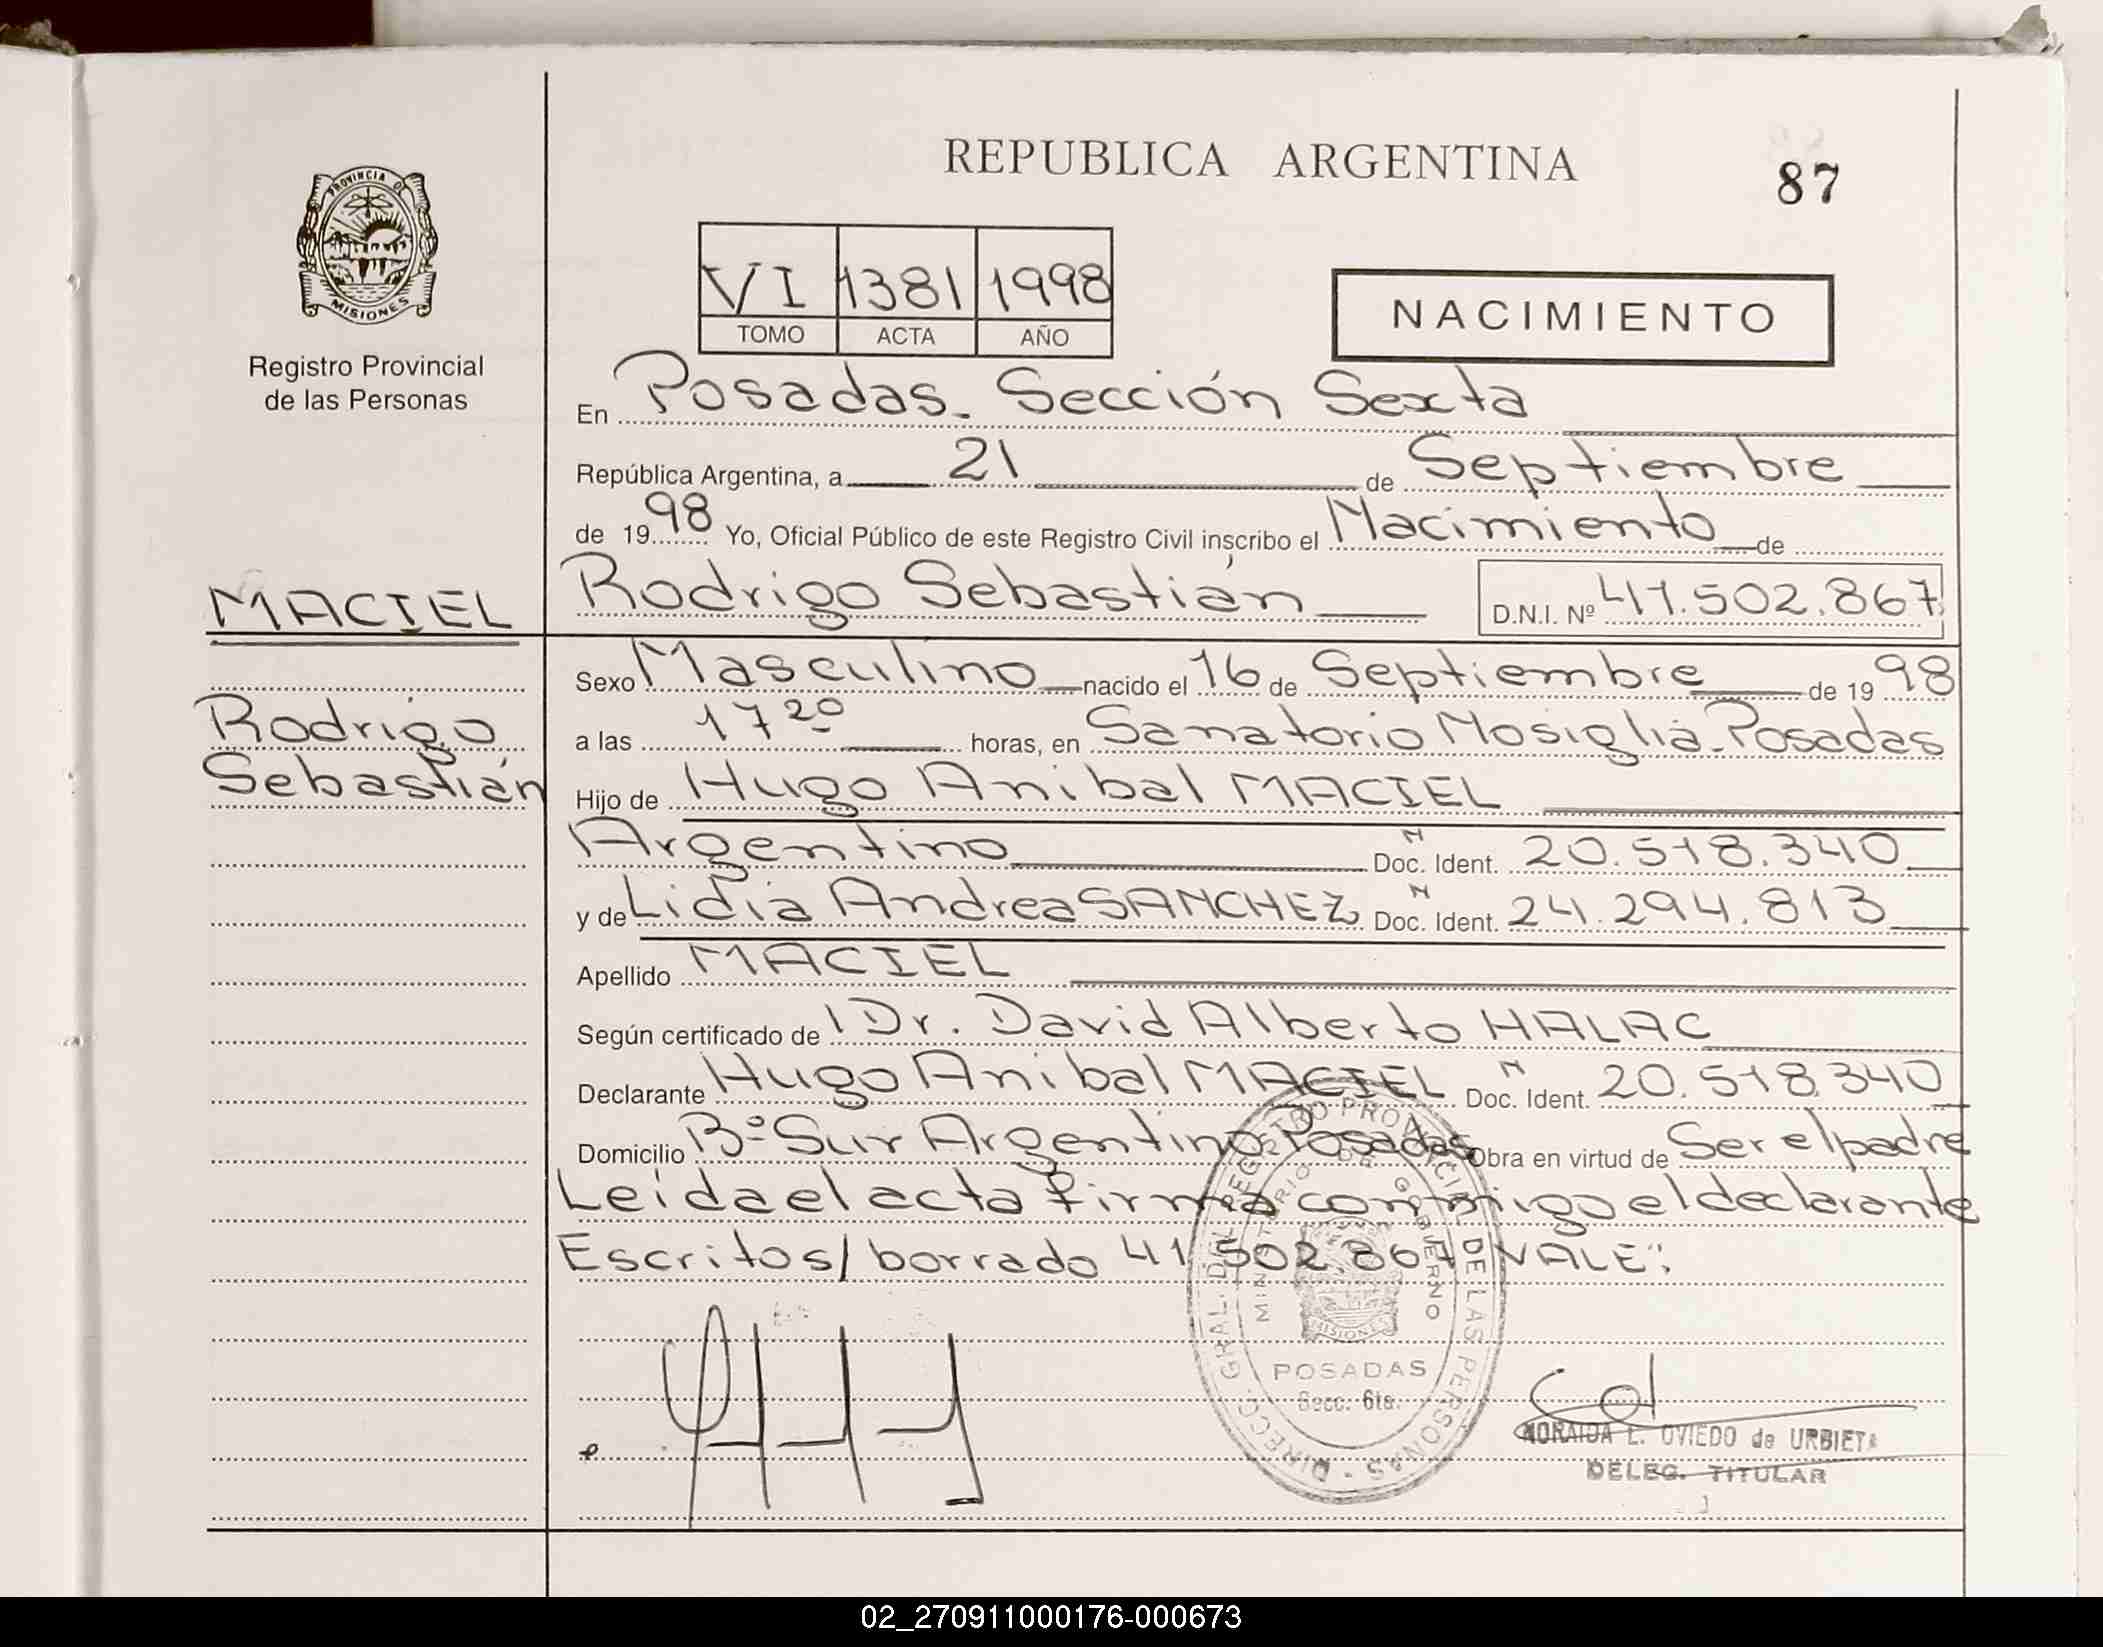 REPUBLICA ARGENTINA
87
PROVINCIA DE
MISIONES
Registro Provincial
de las Personas
VI 1381 1998
TOMO ACTA AÑO
NACIMIENTO
En Posadas - Sección Sexta
República Argentina, a 21 de Septiembre
de 1998 Yo, Oficial Público de este Registro Civil inscribo el Nacimiento de
MACIEL
Rodrigo Sebastián D.N.I. Nº 41.502.867
Sexo Masculino nacido el 16 de Septiembre de 1998
Rodrigo
a las 17 20 horas, en Sanatorio Mosiglia - Posadas
Sebastián
Hijo de Hugo Anibal MACIEL
Argentino N Doc. Ident. 20.518.340
y de Lidia Andrea SANCHEZ N Doc. Ident. 24.294.813
Apellido MACIEL
Según certificado de Dr. David Alberto HALAC
Declarante Hugo Anibal MACIEL N Doc. Ident. 20.518.340
Domicilio Bº Sur Argentino Posadas Obra en virtud de Ser el padre
Leida el acta firma conmigo el declarante
Escritos/ borrado 41 502 867 VALE:
DIRECC. GRAL. DEL REGISTRO PROVINCIAL DE LAS PERSONAS
MINISTERIO DE GOBIERNO
MISIONES
POSADAS
Secc. 6ta.
NORAIDA L. OVIEDO de URBIETA
DELEG. TITULAR
02_270911000176-000673